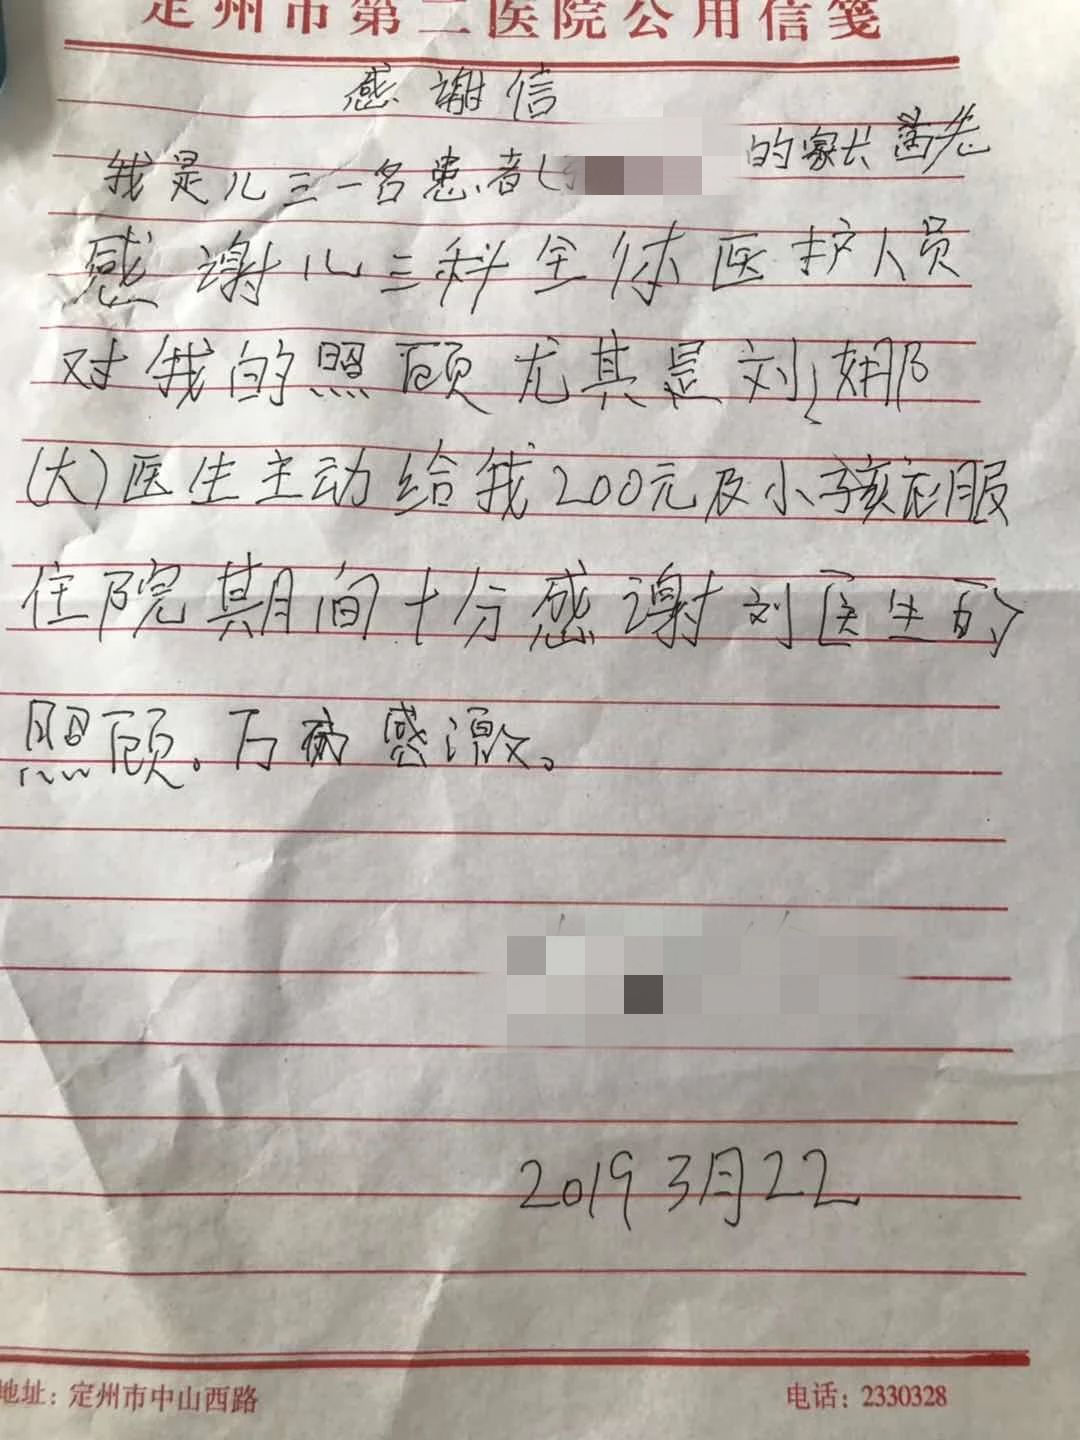 定州市第二医院公用信笺
感谢信
我是儿三一名患者(
的家长 首先
感谢儿三科全体医护人员
对我的照顾尤其是刘娜
(大)医生主动给我200元及小孩衣服
住院期间十分感谢刘医生的
照顾。万分感激。
2019 3月22
地址: 定州市中山西路
电话: 2330328